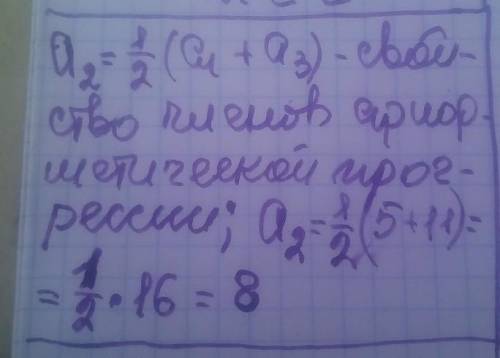 a₂ = 1/2 (a₁ + a₃) - свой-
ство членов ариф-
метической прог-
рессии; a₂ = 1/2 (5+11) =
= 1/2 · 16 = 8